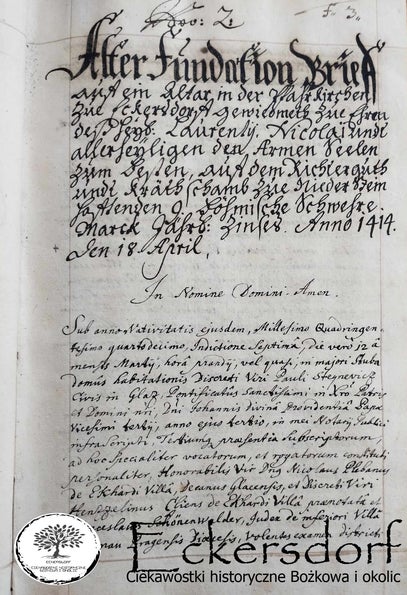 Nro: 2.
F. 3.
Alter Fundation Brieff
auff ein Altar, in der Pfarrkirchen
zue Eckersdorff gewiedmeth zue Ehren
deß Heyl: Laurenty, Nicolai undt
allerheyligen den Armen Seelen
zum besten, auff dem Richterguth
undt Kräthschamb zue Nieder Stem
hafftenden 9. böhmische Schwehre
Marck Jährl: Zinses. Anno 1414.
den 18. April.
In Nomine Domini. Amen.
Sub anno Nativitatis ejusdem, Millesimo Quadringen-
tesimo quartodecimo, Indictione Septima, die verò
mensis Martij, horâ prandij, vel quasi, in majori Stuba
domus habitationis Discreti Viri Pauli Stegnewicz
Civis in Glaz, Pontificatus Sanctissimi in Xro Patris
et Domini nri, Dni Johannis divinâ Providentiâ Papæ
Vicesimi tertij, anno ejus tertio, in mei Notarij Publici
infrascripti, Testiumq præsentia subscriptorum,
ad hoc specialiter vocatorum, et rogatorum constituti
personaliter, Honorabilis Vir Dnq Nicolaus Plebanus
de Ekhardi Villâ, Decanus Glacensis, et Discreti Viri
Hentzelinus Cliens de Ekhardi Villâ prænotatâ et
Schönenwelder, Judex de inferiori Villâ
Pragensis Diæcesis, Volentes examen districti
ECKERSDORF
Eckersdorf
Ciekawostki historyczne Bożkowa i okolic